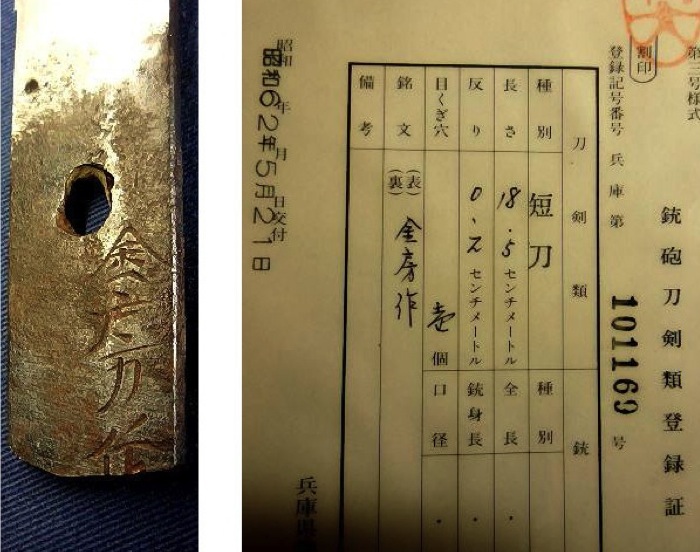 金房作
第三号様式
割印
銃砲刀剣類登録証
登録記号番号 兵庫 第 101169 号
刀剣類 銃
種別 短刀 種別
長さ 18.5センチメートル 全長
反り 0.2センチメートル 銃身長
目くぎ穴 壱個 口径
銘文 (表)(裏) 金房作
備考
昭和 年 月 日交付
昭和62年5月21日
兵庫県